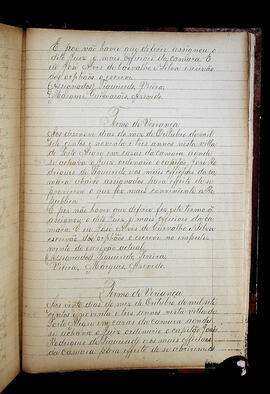 E por não haver que deferir assignou o
dito Juiz e mais officiaes da camara. E
eu José Alves de Carvalho e Silva escrivão
dos orphãos o escrevi.
(Assignados) Figueiredo, Vieira,
Marques, Guimarães, Azevedo.
Termo de Veriança
Aos dezenove dias do mez de Outubro de mil
sete centos e noventa e tres annos nesta villa
de Porto Alegre em casas da camara aonde
se achava o Juiz ordinario o capitão José Ro
drigues de Figueiredo e os mais officiaes da ca
mara abaixo assignados para effeito de se
proverem o que for mais conveniente a Re
publica.
E por não haver que deferir fiz este termo q̃
assignou o dito Juiz e mais officiaes da ca
mara. E eu José Alves de Carvalho e Silva
escrivão dos orphãos o escrevi no impedi
mento do escrivão actual.
(Assignados) Figueiredo, Pereira,
Vieira, Marques, Azevedo.
Termo de Veriança
Aos vinte dias do mez de Outubro de mil sete
centos e noventa e tres annos nesta villa de
Porto Alegre em casas da camara aonde
se achava o Juiz ordinario o capitão José
Rodrigues de Figueiredo e os mais officiaes
da camara para effeito de se